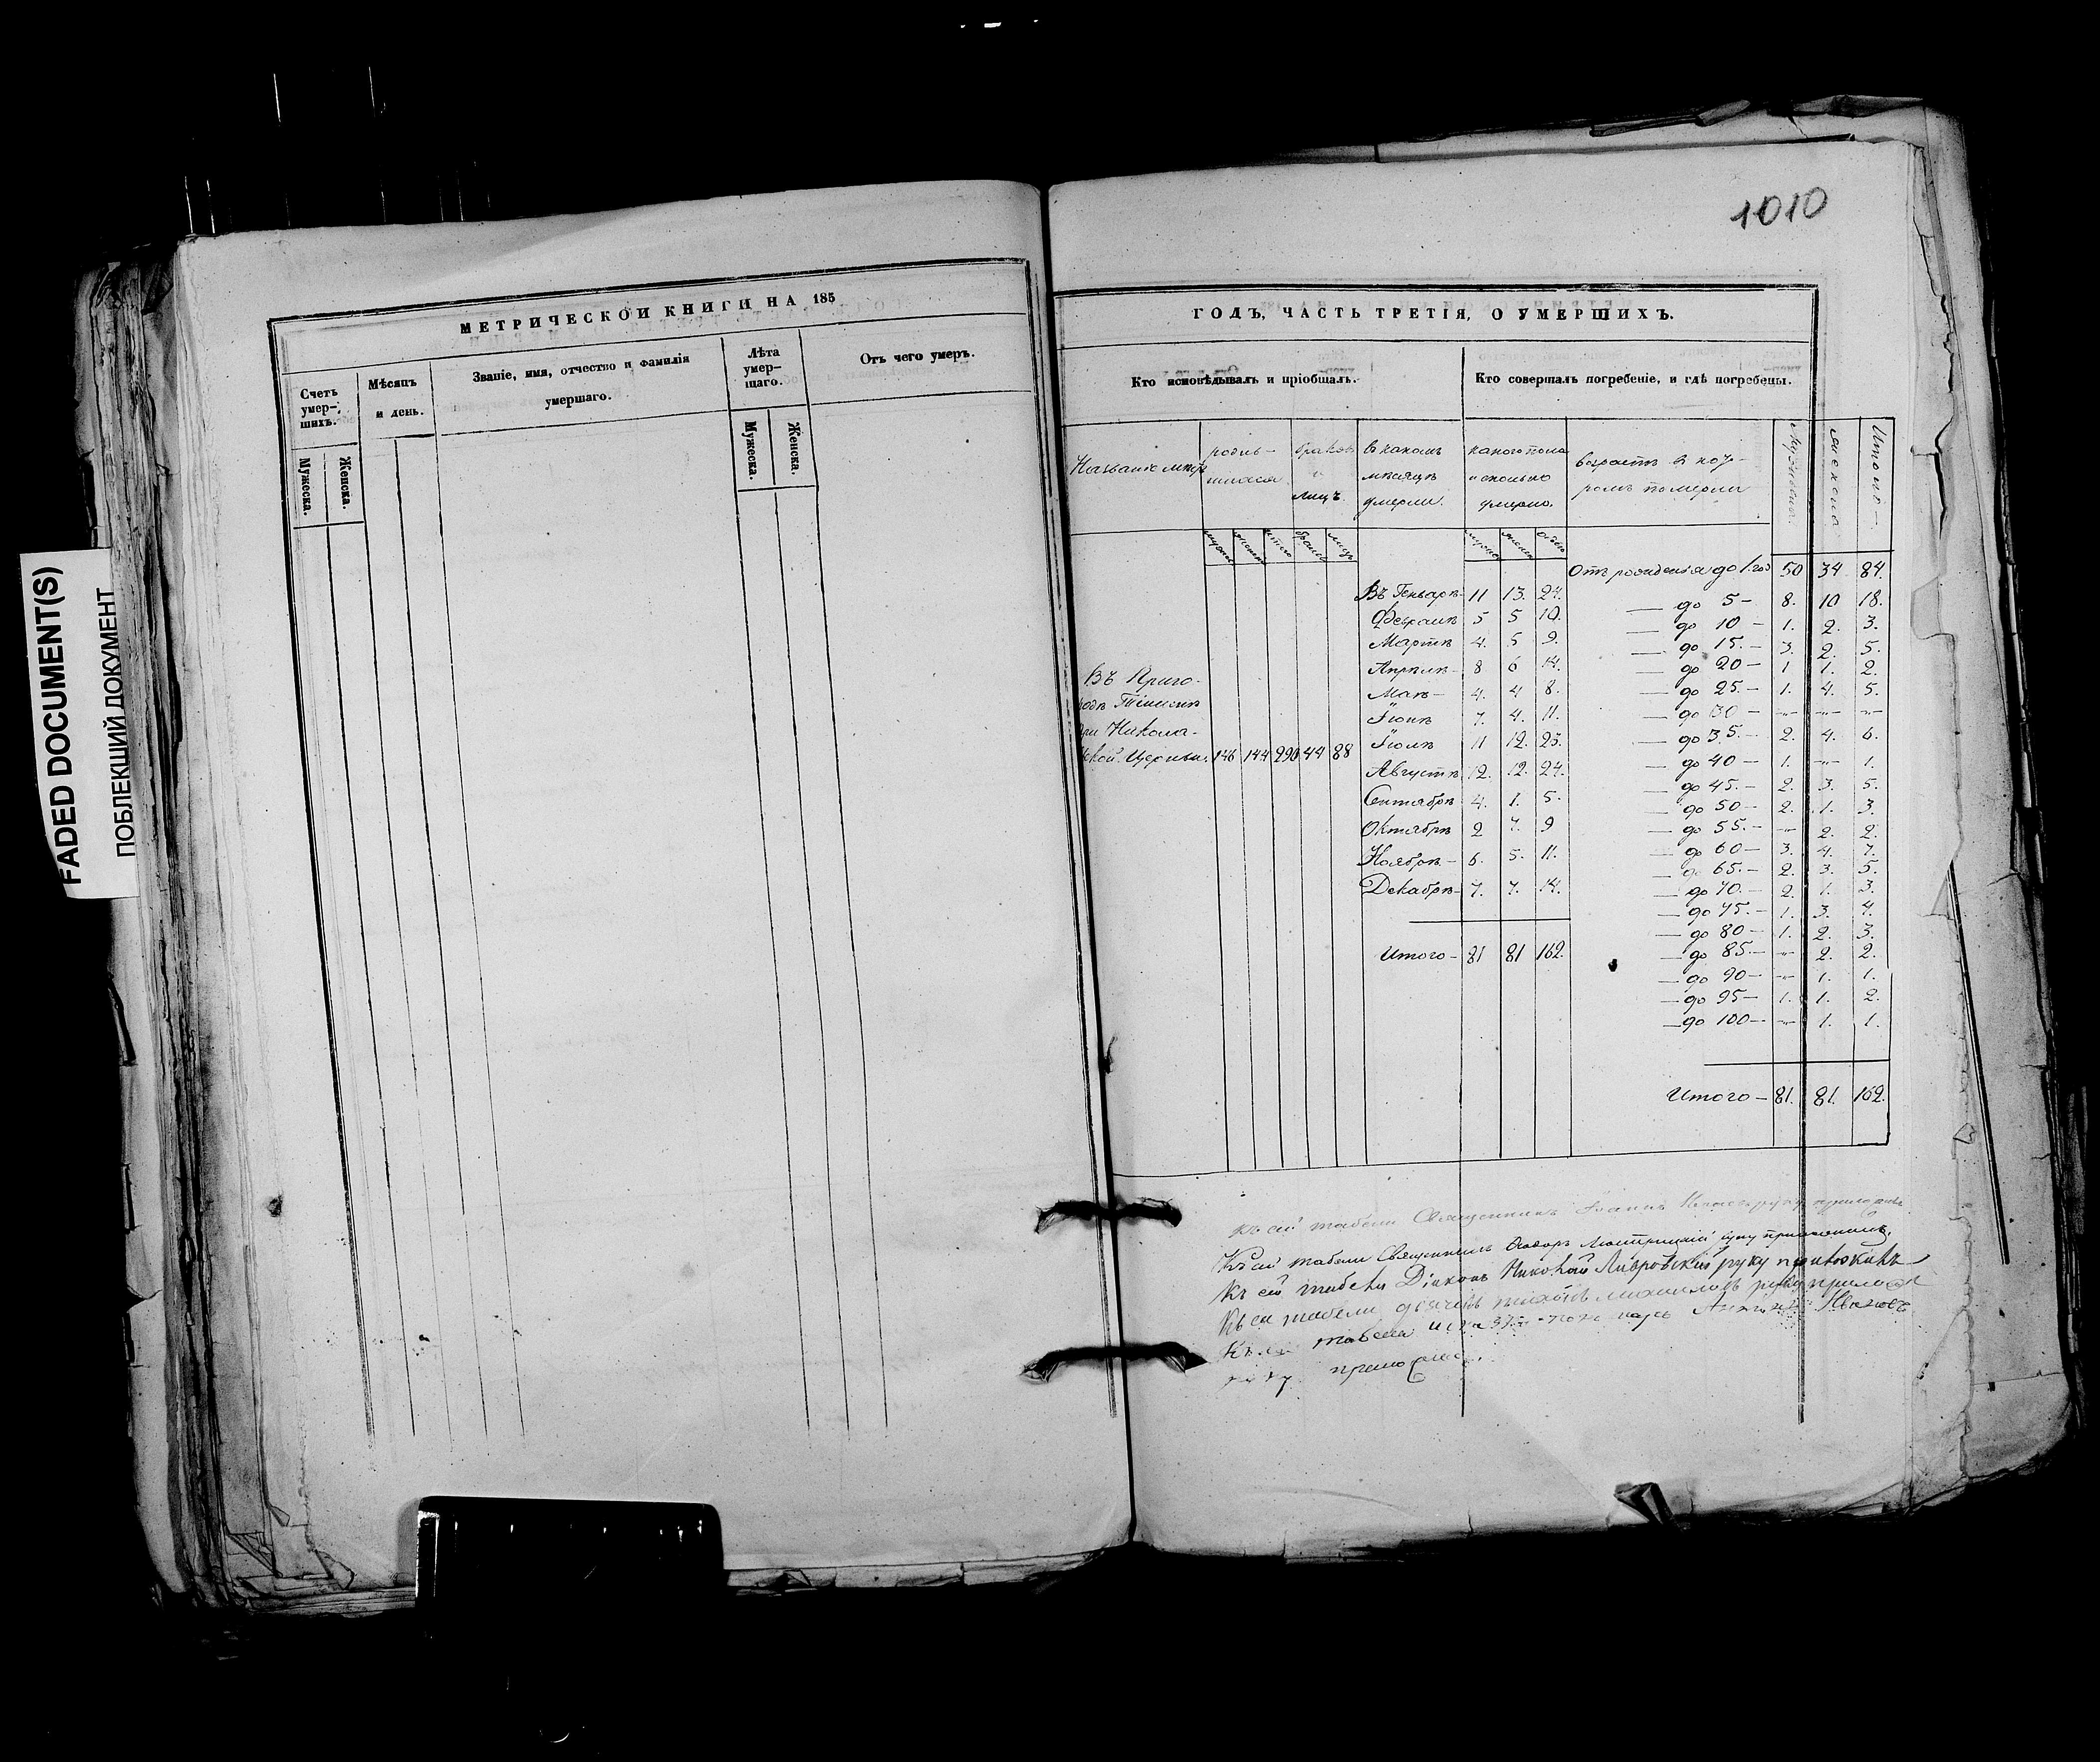 1010
FADED DOCUMENT(S)
ПОБЛЕКЩИЙ ДОКУМЕНТ
МЕТРИЧЕСКОЙ КНИГИ НА 185
Счетъ умер-шихъ.
Мужеска.
Женска.
Мѣсяцъ и день.
Званіе, имя, отчество и фамилія умершаго.
Лѣта умер-шаго.
Мужеска.
Женска.
Отъ чего умеръ.
ГОДЪ, ЧАСТЬ ТРЕТІЯ, О УМЕРШИХЪ.
Кто исповѣдывалъ и пріобщалъ.
Кто совершалъ погребеніе, и гдѣ погребены.
Названіе
родив-шихся
браковъ и лицъ
въ какомъ мѣсяцѣ умерли.
какого пола и сколько умерло.
возрастъ въ ко-ромъ померли
Итого
Въ Приго-
родѣ
при Никола-
евской Церкви. 146 144 290 44 88
Въ Генварѣ 11 13. 24.
Февралѣ 5 5 10.
Мартѣ 4. 5 9.
Апрѣлѣ 8 6 14.
Маѣ 4. 4 8.
Іюнѣ 7. 4. 11.
Іюлѣ 11 12. 23.
Августѣ 12. 12. 24.
Сентябрѣ 4. 1. 5.
Октябрѣ 2 7. 9
Ноябрѣ 6. 5. 11.
Декабрѣ 7. 7. 14.
Итого 81 81 162.
Отъ рожденія до 1. год 50 34 84.
до 5 8. 10 18.
до 10 1. 2. 3.
до 15. 3. 2. 5.
до 20 1 1. 2.
до 25. 1. 4. 5.
до 30 — — —
до 35. 2. 4. 6.
до 40 1. — 1.
до 45. 2. 3. 5.
до 50 2. 1. 3.
до 55. — 2. 2.
до 60 3. 4. 7.
до 65. 2. 3. 5.
до 70. 2. 1. 3.
до 75. 1. 3. 4.
до 80 1. 2. 3.
до 85. — 2. 2.
до 90 — 1. 1.
до 95 1. 1. 2.
до 100 — 1. 1.
Итого 81. 81. 162.
Къ сей табели Священникъ Іоаннъ руку приложилъ
Къ сей табели Священникъ Ѳеодоръ руку приложилъ.
Къ сей табели Діаконъ Николай Лавровскій руку приложилъ
Къ сей табели дьячекъ Михайловъ руку приложилъ
Къ сей табели Иванов
руку приложилъ.